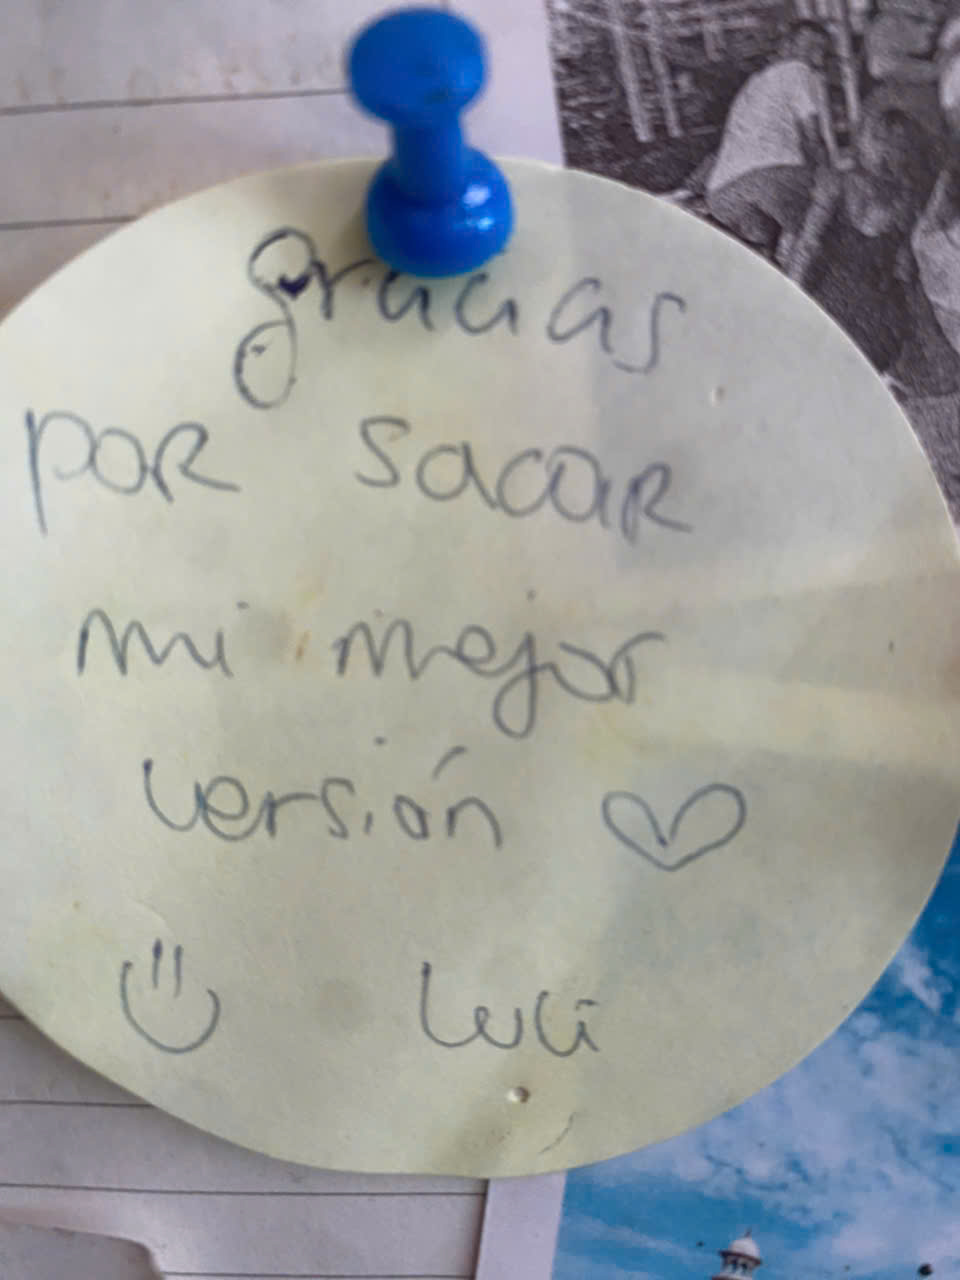 gracias
por sacar
mi mejor
versión ♡
Luci